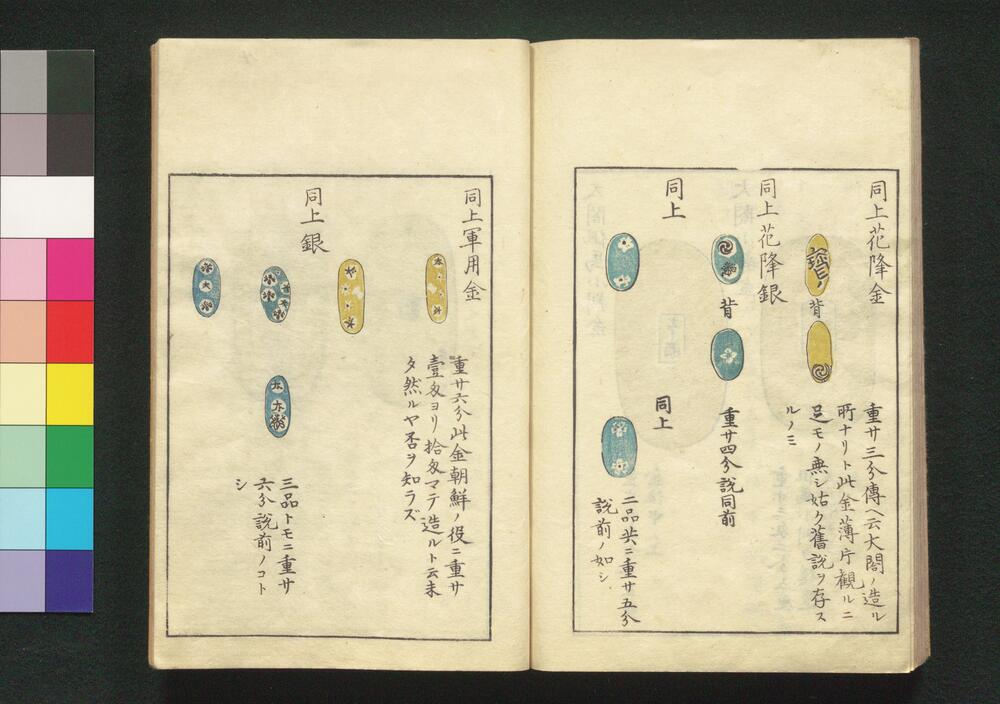 同上花降金
背
重サ三分傳ヘ云大閤ノ造ル
所ナリト此金薄片觀ルニ
足モノ無シ姑ク舊説ヲ存ス
ルノミ
同上花降銀
背
重サ四分説同前
同上
同上
二品共ニ重サ五分
説前ノ如シ
同上軍用金
重サ六分此金朝鮮ノ役ニ重サ
壹匁ヨリ拾匁マテ造ルト云未
タ然ルヤ否ヲ知ラズ
同上銀
三品トモニ重サ
六分説前ノコト
シ